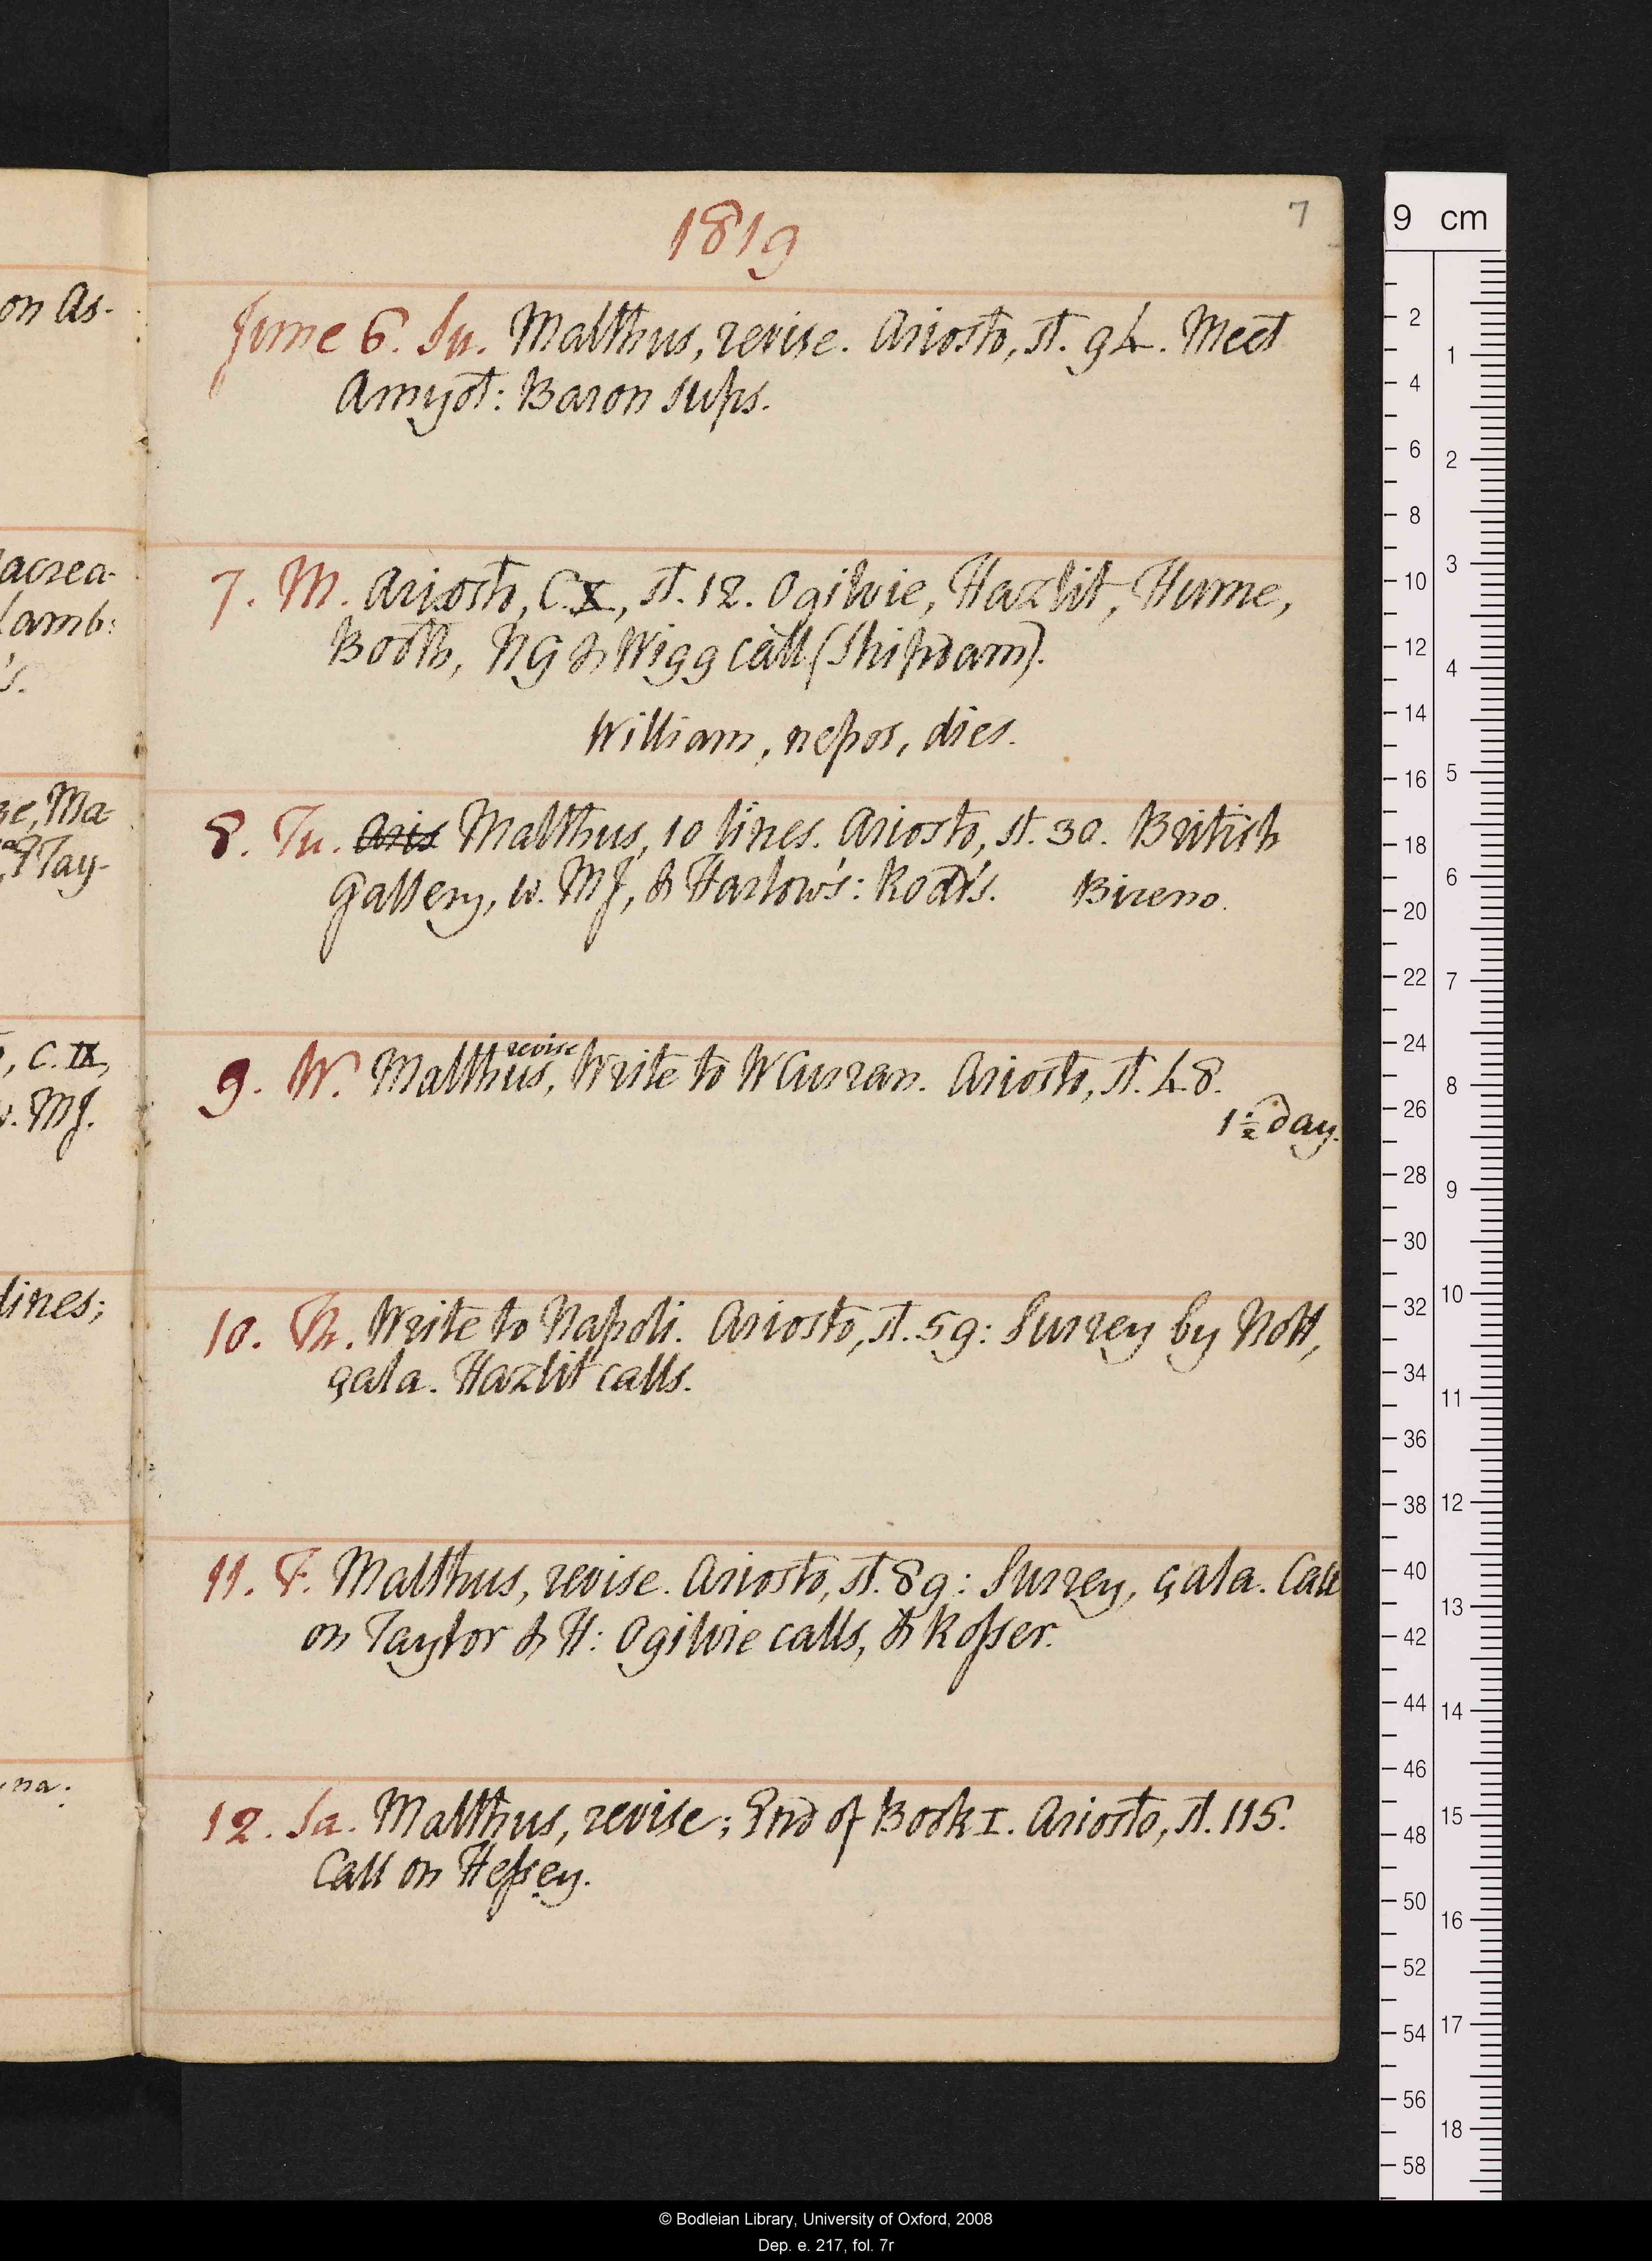 on As-
acrea-
Lamb:
's.
se, Ma-
Tay-
, C. IX,
w. MJ.
lines;
na.
7
1819
June 6. Su. Malthus, revise. Ariosto, st. 94. Meet
Amyot: Baron sups.
7. M. Ariosto, C. X, st. 12. Ogilvie, Hazlit, Hume,
Booth, NG & Wigg call (Shipdam).
William, nepos, dies.
8. Tu. Aris Malthus, 10 lines. Ariosto, st. 30. British
Gallery, w. MJ, & Harlow's: Rodd's. Bireno.
revise
9. W. Malthus, Write to W Curran. Ariosto, st. 48.
1 1/2 day.
10. Th. Write to Napoli. Ariosto, st. 59: Surrey by Nott,
çala. Hazlit calls.
11. F. Malthus, revise. Ariosto, st. 89: Surrey, çala. Call
on Taylor & H: Ogilvie calls, & Rosser.
12. Sa. Malthus, revise; End of Book I. Ariosto, st. 115.
Call on Hessey.
9 cm
2
4
6
8
10
12
14
16
18
20
22
24
26
28
30
32
34
36
38
40
42
44
46
48
50
52
54
56
58
1
2
3
4
5
6
7
8
9
10
11
12
13
14
15
16
17
18
© Bodleian Library, University of Oxford, 2008
Dep. e. 217, fol. 7r